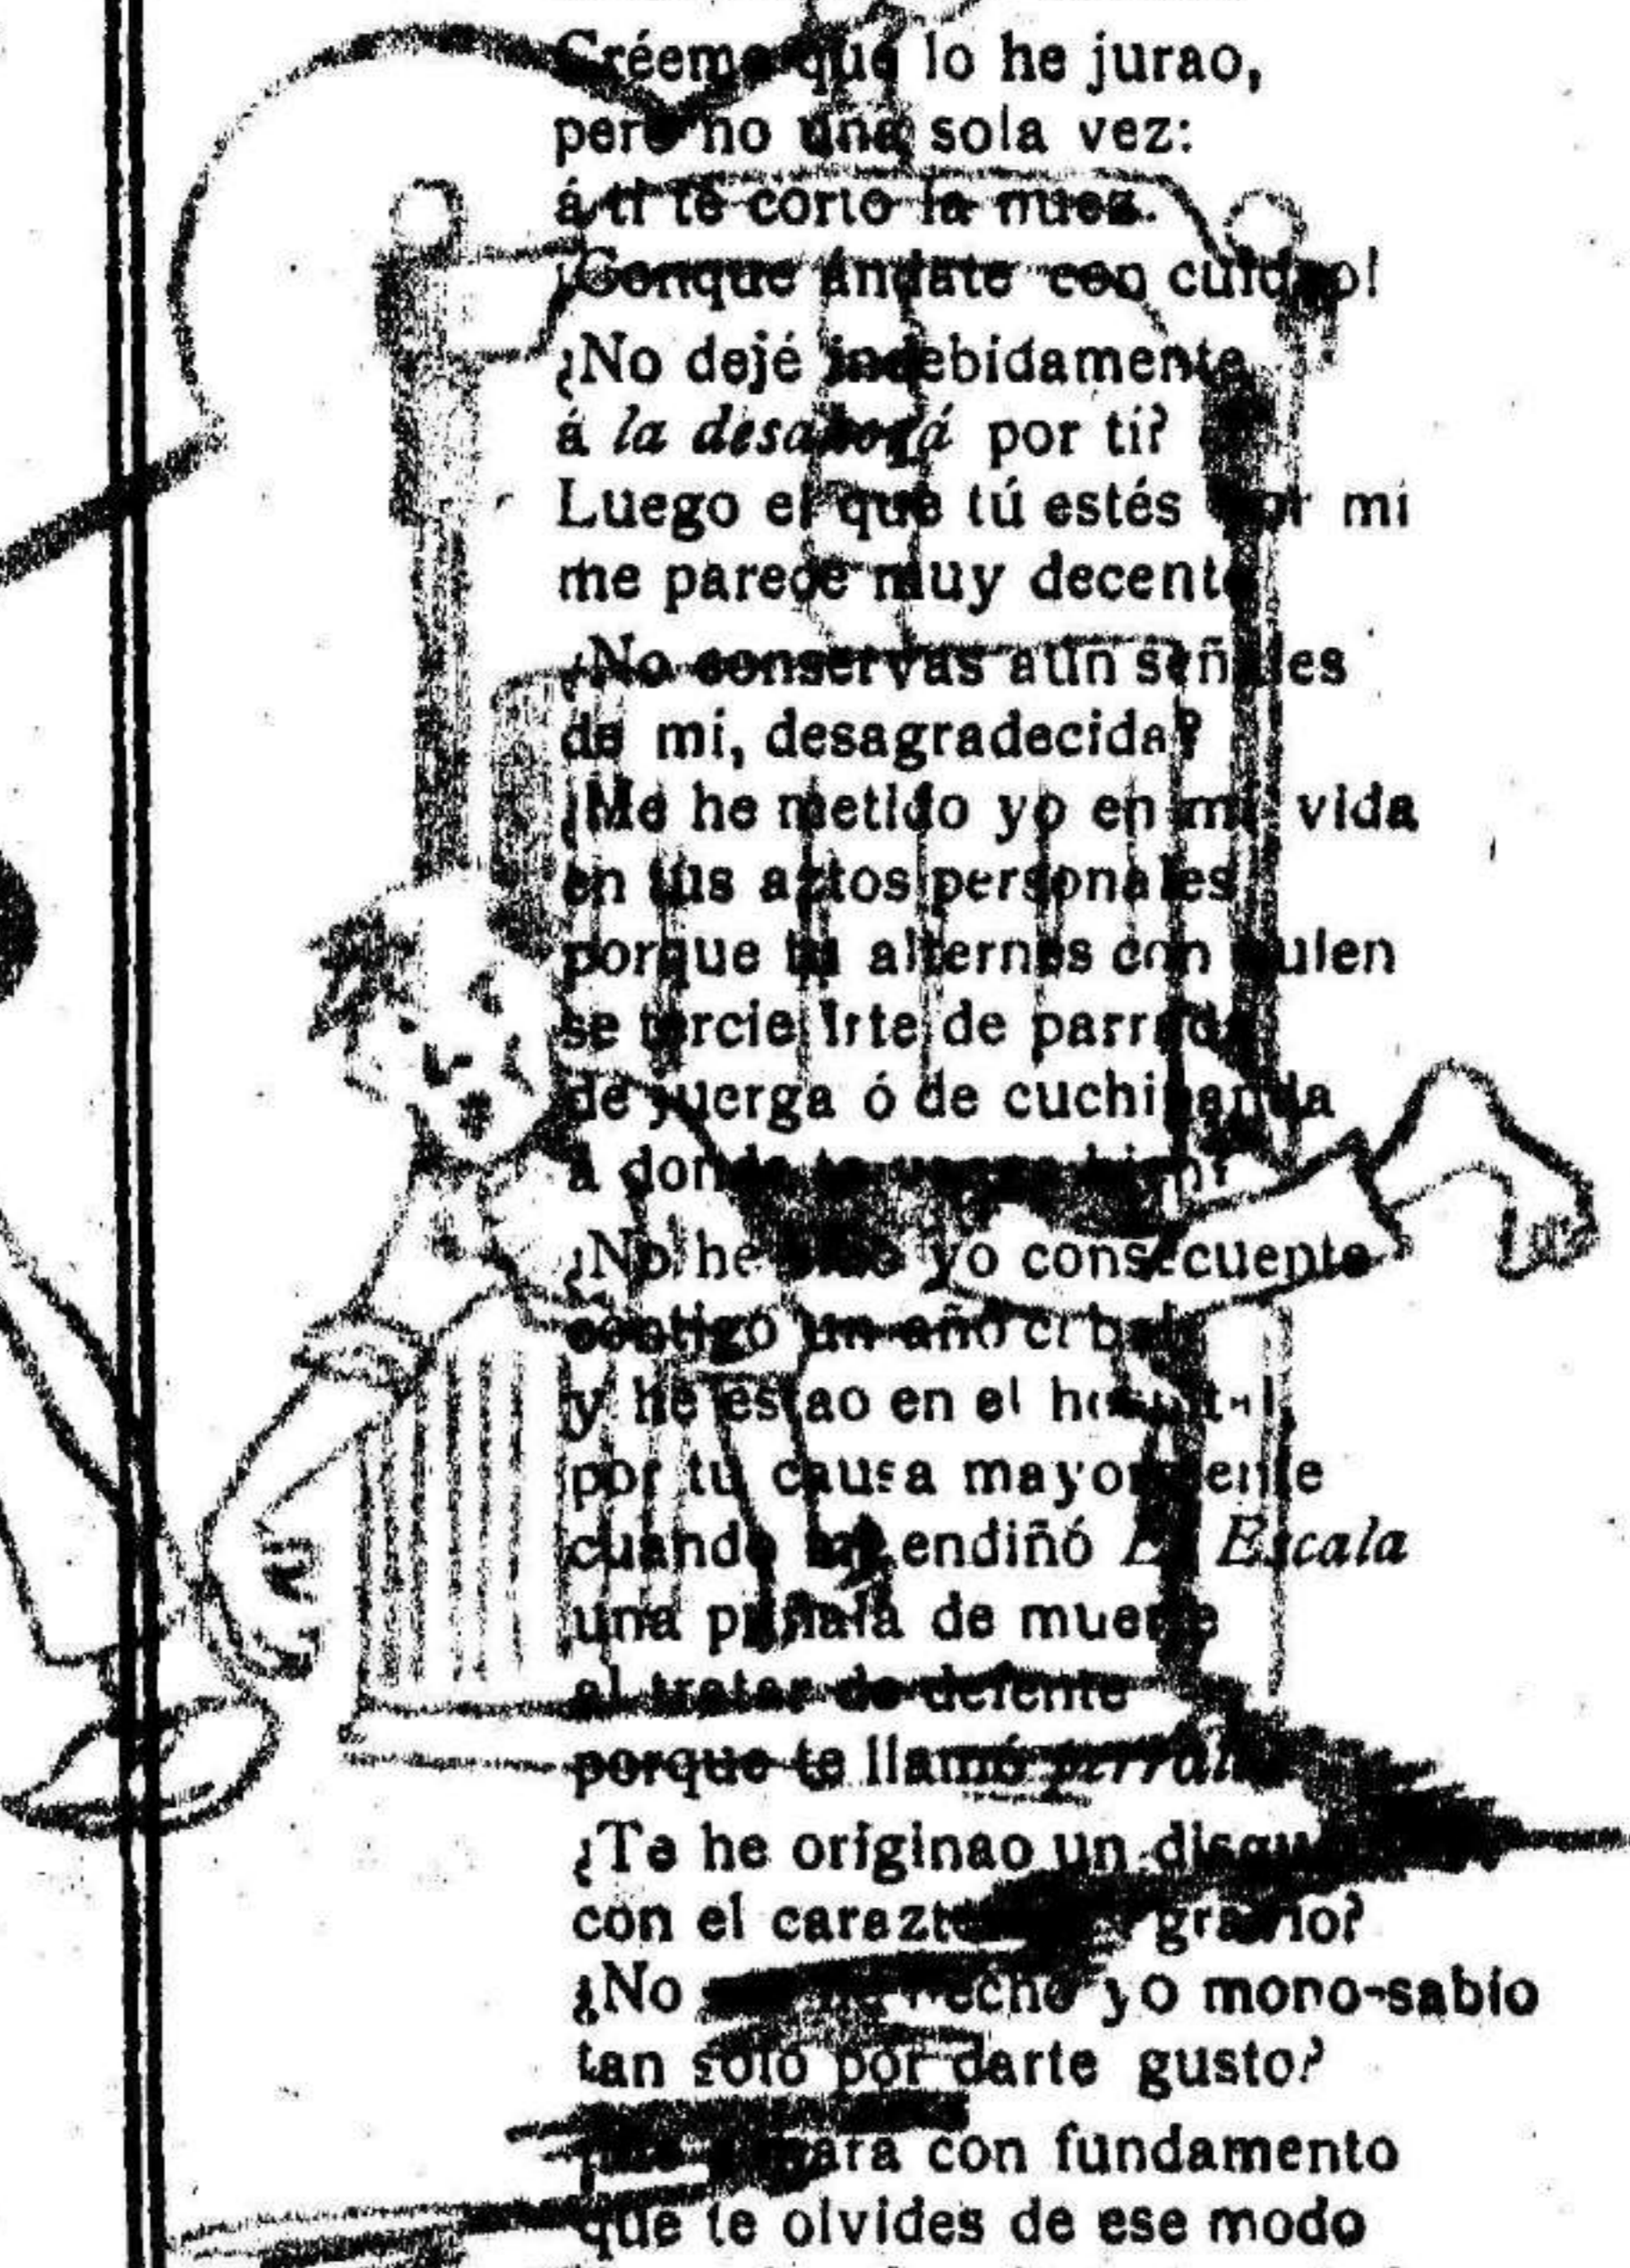 Créeme que lo he jurao,
pero no una sola vez:
á ti te corto la nuez.
¡Conque ándate con cuidao!
¿No dejé indebidamente
á la desaborá por ti?
Luego el que tú estés por mí
me parece muy decente
¿No conservas aún señales
de mí, desagradecida?
¿Me he metido yo en mi vida
en tus aztos personales
porque tú alternes con quien
se tercie, irte de parranda
de juerga ó de cuchipanda
á donde te venga bien?
¿No he sido yo consecuente
contigo un año cabal
y he estao en el hospital,
por tu causa mayormente
cuando me endiñó El Escala
una puñalá de muerte
al tratar de defenterte
porque te llamó
¿Te he originao un disgusto
con el carazter agravio?
¿No hecho yo mono-sabio
tan sólo por darte gusto?
con fundamento
que te olvides de ese modo